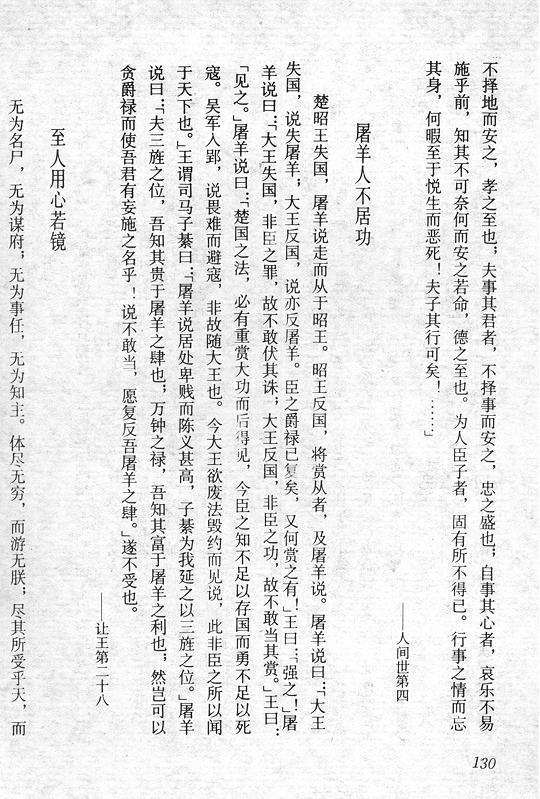 不择地而安之，孝之至也；夫事其君者，不择事而安之，忠之盛也；自事其心者，哀乐不易
施乎前，知其不可奈何而安之若命，德之至也。为人臣子者，固有所不得已。行事之情而忘
其身，何暇至于悦生而恶死！夫子其行可矣！……」
——人间世第四
屠羊人不居功
楚昭王失国，屠羊说走而从于昭王。昭王反国，将赏从者，及屠羊说。屠羊说曰：「大王
失国，说失屠羊；大王反国，说亦反屠羊。臣之爵禄已复矣，又何赏之有！」王曰：「强之！」屠
羊说曰：「大王失国，非臣之罪，故不敢伏其诛；大王反国，非臣之功，故不敢当其赏。」王曰：
「见之。」屠羊说曰：「楚国之法，必有重赏大功而后得见，今臣之知不足以存国而勇不足以死
寇。吴军入郢，说畏难而避寇，非故随大王也。今大王欲废法毁约而见说，此非臣之所以闻
于天下也。」王谓司马子綦曰：「屠羊说居处卑贱而陈义甚高，子綦为我延之以三旌之位。」屠羊
说曰：「夫三旌之位，吾知其贵于屠羊之肆也；万钟之禄，吾知其富于屠羊之利也；然岂可以
贪爵禄而使吾君有妄施之名乎！说不敢当，愿复反吾屠羊之肆。」遂不受也。
——让王第二十八
至人用心若镜
无为名尸，无为谋府；无为事任，无为知主。体尽无穷，而游无朕；尽其所受乎天，而
130